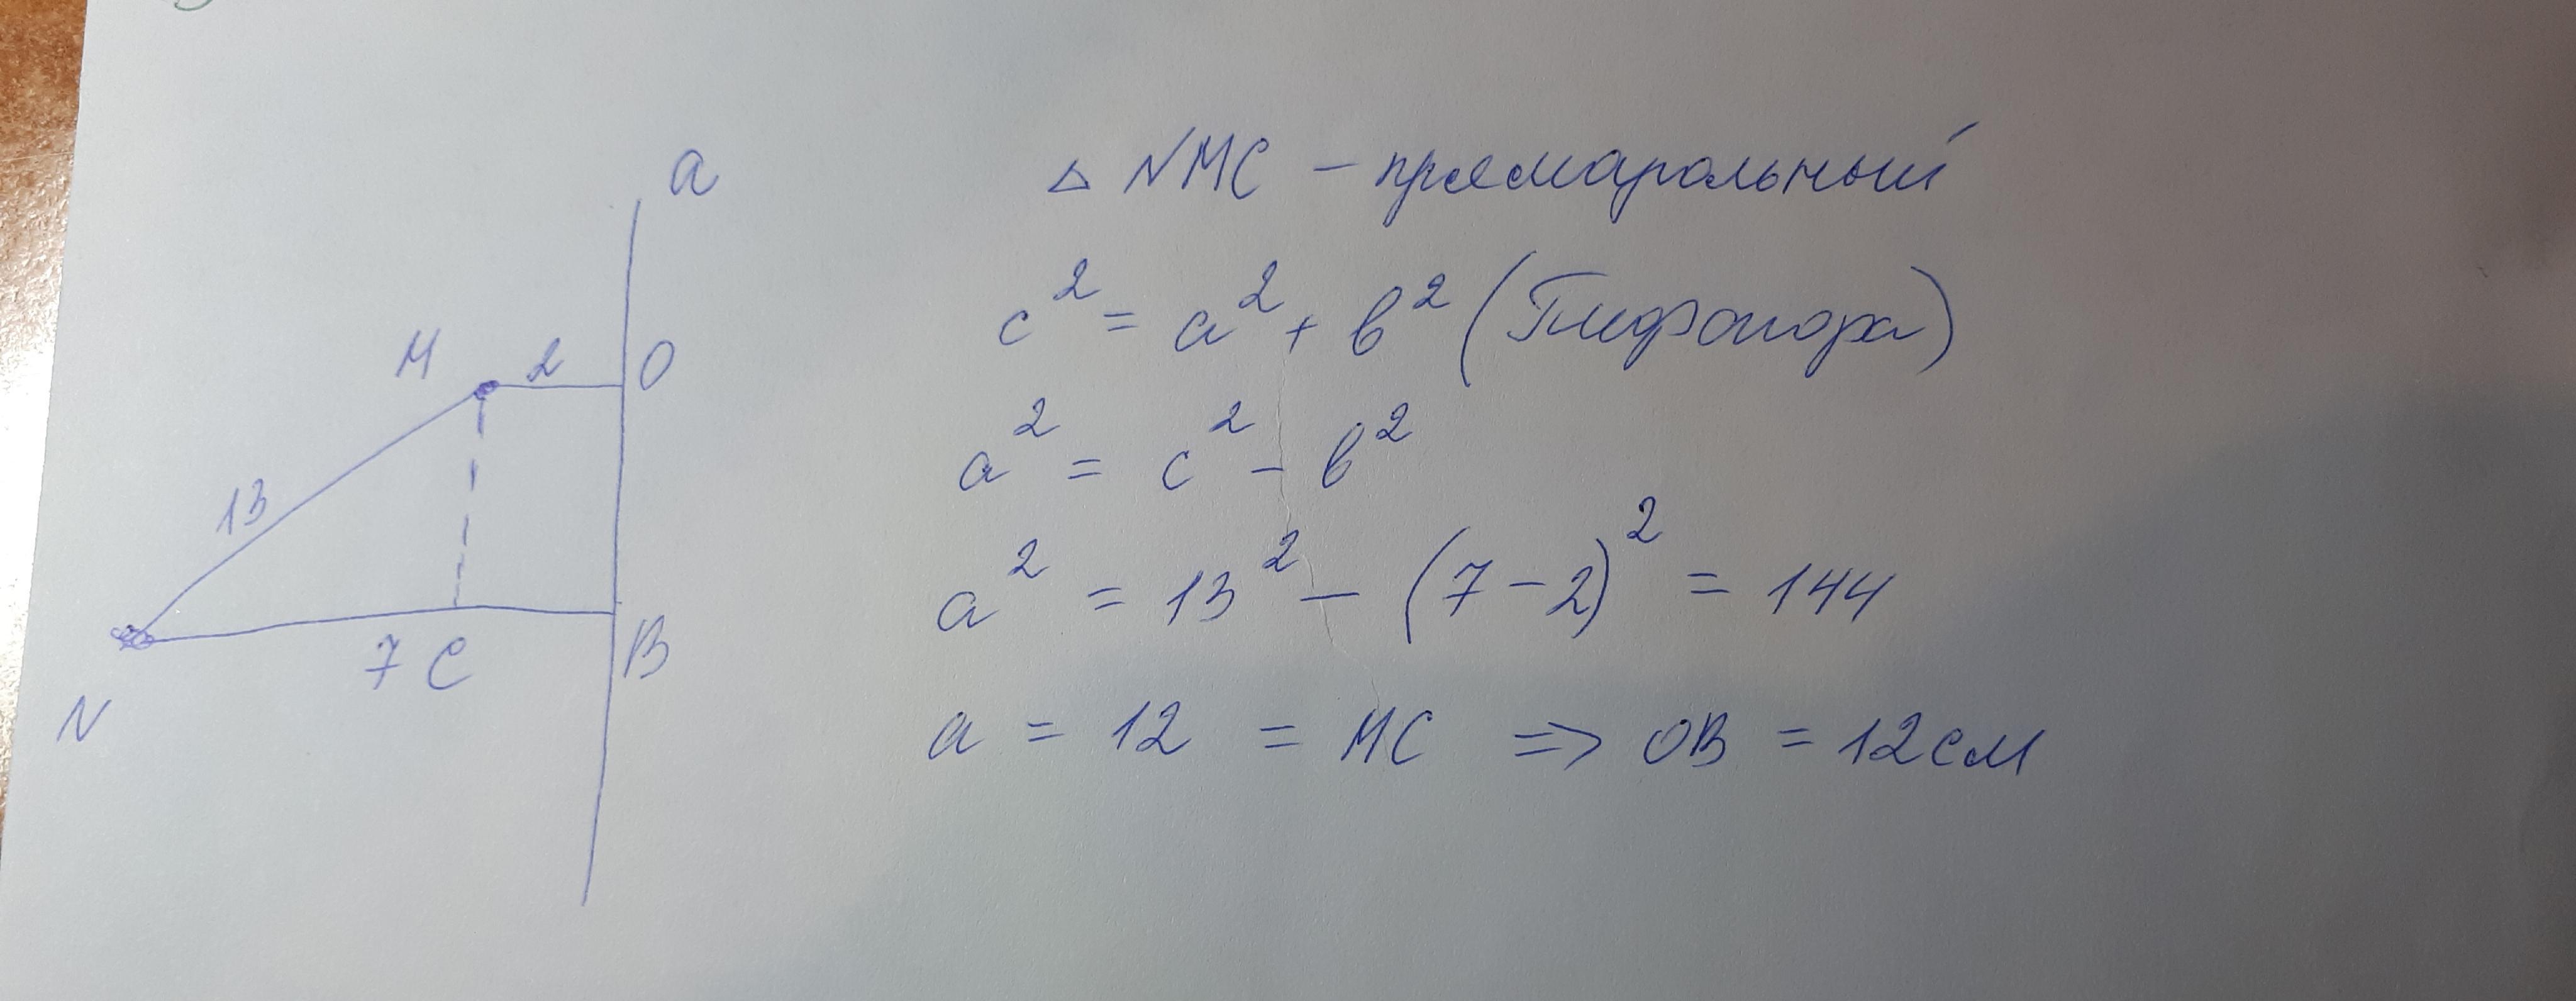 a
M 2 O
13
7 C B
N
△ NMC – прямоугольный
c² = a² + b² (Пифагора)
a² = c² - b²
a² = 13² - (7-2)² = 144
a = 12 = MC => OB = 12см